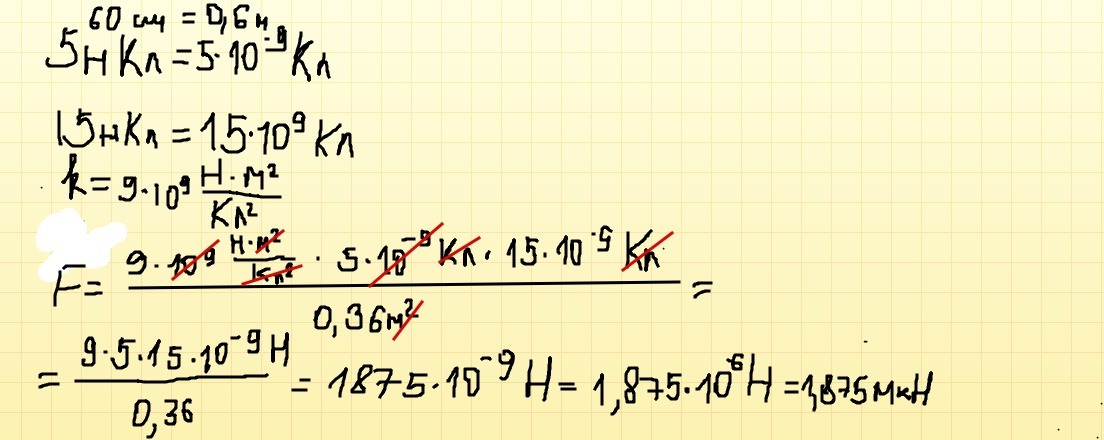 60 см = 0,6 м
5 н Кл = 5·10⁻⁹ Кл
15 нКл = 15·10⁹ Кл
k = 9·10⁹ Н·м²/Кл²
F = (9·10⁹ Н·м²/Кл² · 5·10⁻⁹ Кл · 15·10⁻⁹ Кл)/(0,36м²) =
= (9·5·15·10⁻⁹ Н)/(0,36) = 1875·10⁻⁹ Н = 1,875·10⁶ Н = 1,875 мкН